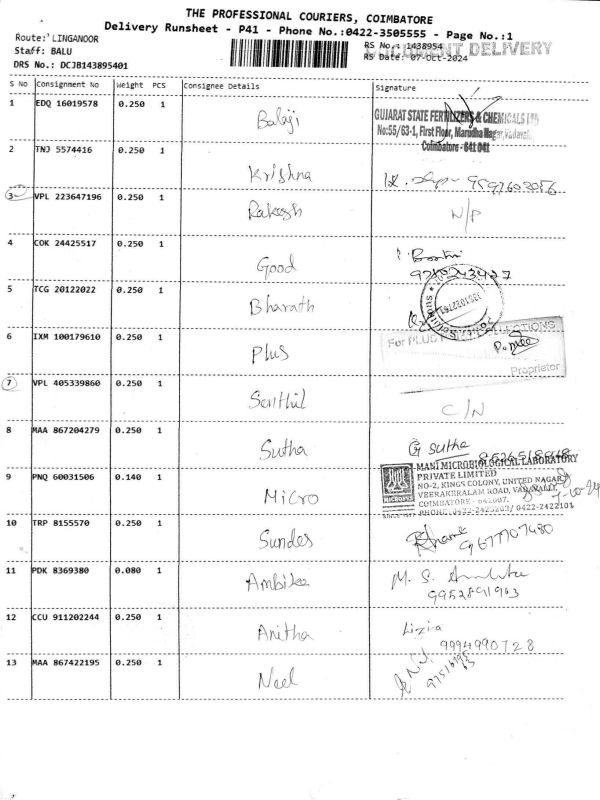 THE PROFESSIONAL COURIERS, COIMBATORE
Delivery Runsheet - P41 - Phone No.:0422-3505555 - Page No.:1
Route: LINGANOOR
Staff: BALU
DRS No.: DCJB143895401
RS No.: 1438954
DOCUMENT DELIVERY
RS Date: 07-Oct-2024
S No Consignment No Weight PCS Consignee Details Signature
1 EDQ 16019578 0.250 1 Balaji
GUJARAT STATE FERTILIZERS & CHEMICALS LTD
No:55/63-1, First Floor, Marudha Nagar, Vadavalli,
Coimbatore - 641 041
2 TNJ 5574416 0.250 1 Krishna
3 VPL 223647196 0.250 1 Rakesh N/P
4 COK 24425517 0.250 1 Good
5 TCG 20122022 0.250 1 Bharath
6 IXM 100179610 0.250 1 Plus
For PLUS
Proprietor
7 VPL 405339860 0.250 1 Senthil C/N
8 MAA 867204279 0.250 1 Sutha G Sutha
9 PNQ 60031506 0.140 1 Micro
MANI MICROBIOLOGICAL LABORATORY
PRIVATE LIMITED
NO-2, KINGS COLONY, UNITED NAGAR,
VEERAKERALAM ROAD, VADAVALLY,
COIMBATORE - 641007.
PHONE: 0422-2425203/ 0422-2422101
10 TRP 8155570 0.250 1 Sundes
9677707480
11 PDK 8369380 0.080 1 Ambika M. S.
9952891963
12 CCU 911202244 0.250 1 Anitha Lizia
9994990728
13 MAA 867422195 0.250 1 Neel